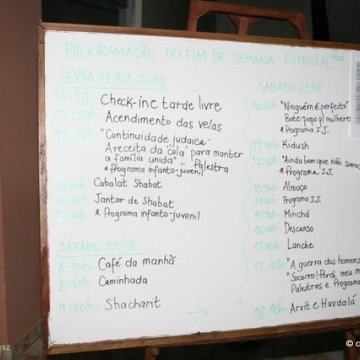 PROGRAMAÇÃO DO FIM DE SEMANA ESPECIAL
SEXTA-FEIRA 20/08
14-17h: Check-in e tarde livre
17:20h: Acendimento das velas
18:00h: "Continuidade judaica:
A receita da cola para manter
a família unida" - Palestra
* Programa infanto-juvenil
Cabalat Shabat
Jantar de Shabat
* Programa infanto-juvenil
SÁBADO 21/08
8-10h: Café da manhã
8:30h: Caminhada
9:30h: Shacharit
→
SÁBADO 21/08
10:30h: "Ninguém é perfeito"
Bate papo p/ mulheres
* Programa I.J.
Kidush
"Ainda bem que não somos
* Programa I.J.
Almoço
Programa I.J.
Minchá
Descanso
Lanche
"A guerra dos homens
"Socorro! Perdi meu
Palestras e Programa
18:40h: Arvit e Havdalá